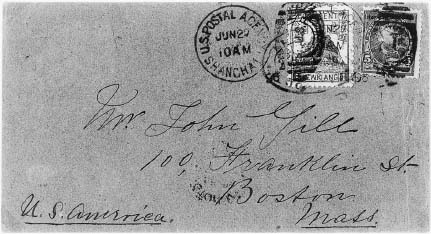 U.S. POSTAL AGENCY
JUN 29
10 AM
SHANGHAI
Mr. John Gill
100, Franklin St.
Boston
Mass.
U.S. America.